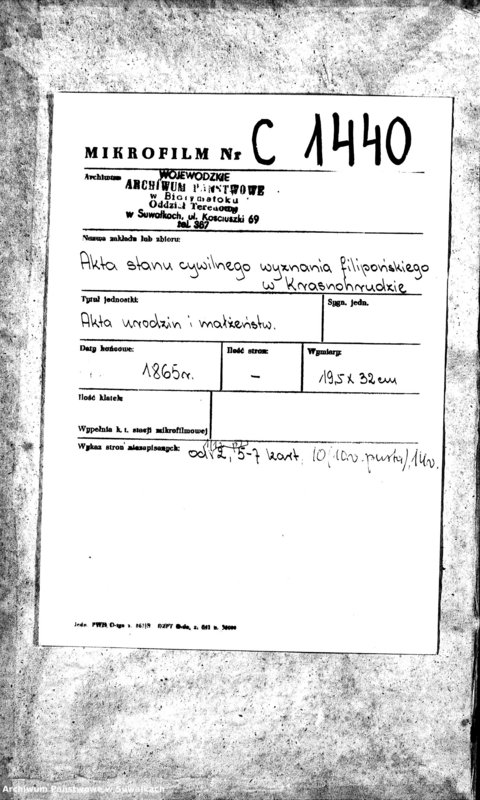 MIKROFILM Nr C 1440
Archiwum
WOJEWODZKIE
ARCHIWUM PAŃSTWOWE
w Białymstoku
Oddział Terenowy
w Suwałkach, ul. Kościuszki 69
tel. 367
Nazwa zakładu lub zbioru:
Akta stanu cywilnego wyznania filipońskiego
w Krasnohrudzie
Tytuł jednostki:
Sygn. jedn.
Akta urodzin i małżeństw.
Daty końcowe:
Ilość stron:
Wymiary:
1865r.
—
19,5 x 32 cm
Ilość klatek:
Wypełnia k. t. stacji mikrofilmowej
Wykaz stron niezapisanych:
od 2, 5-7 kart. 10 (10v. pusta), 14v.
Archiwum Państwowe w Suwałkach